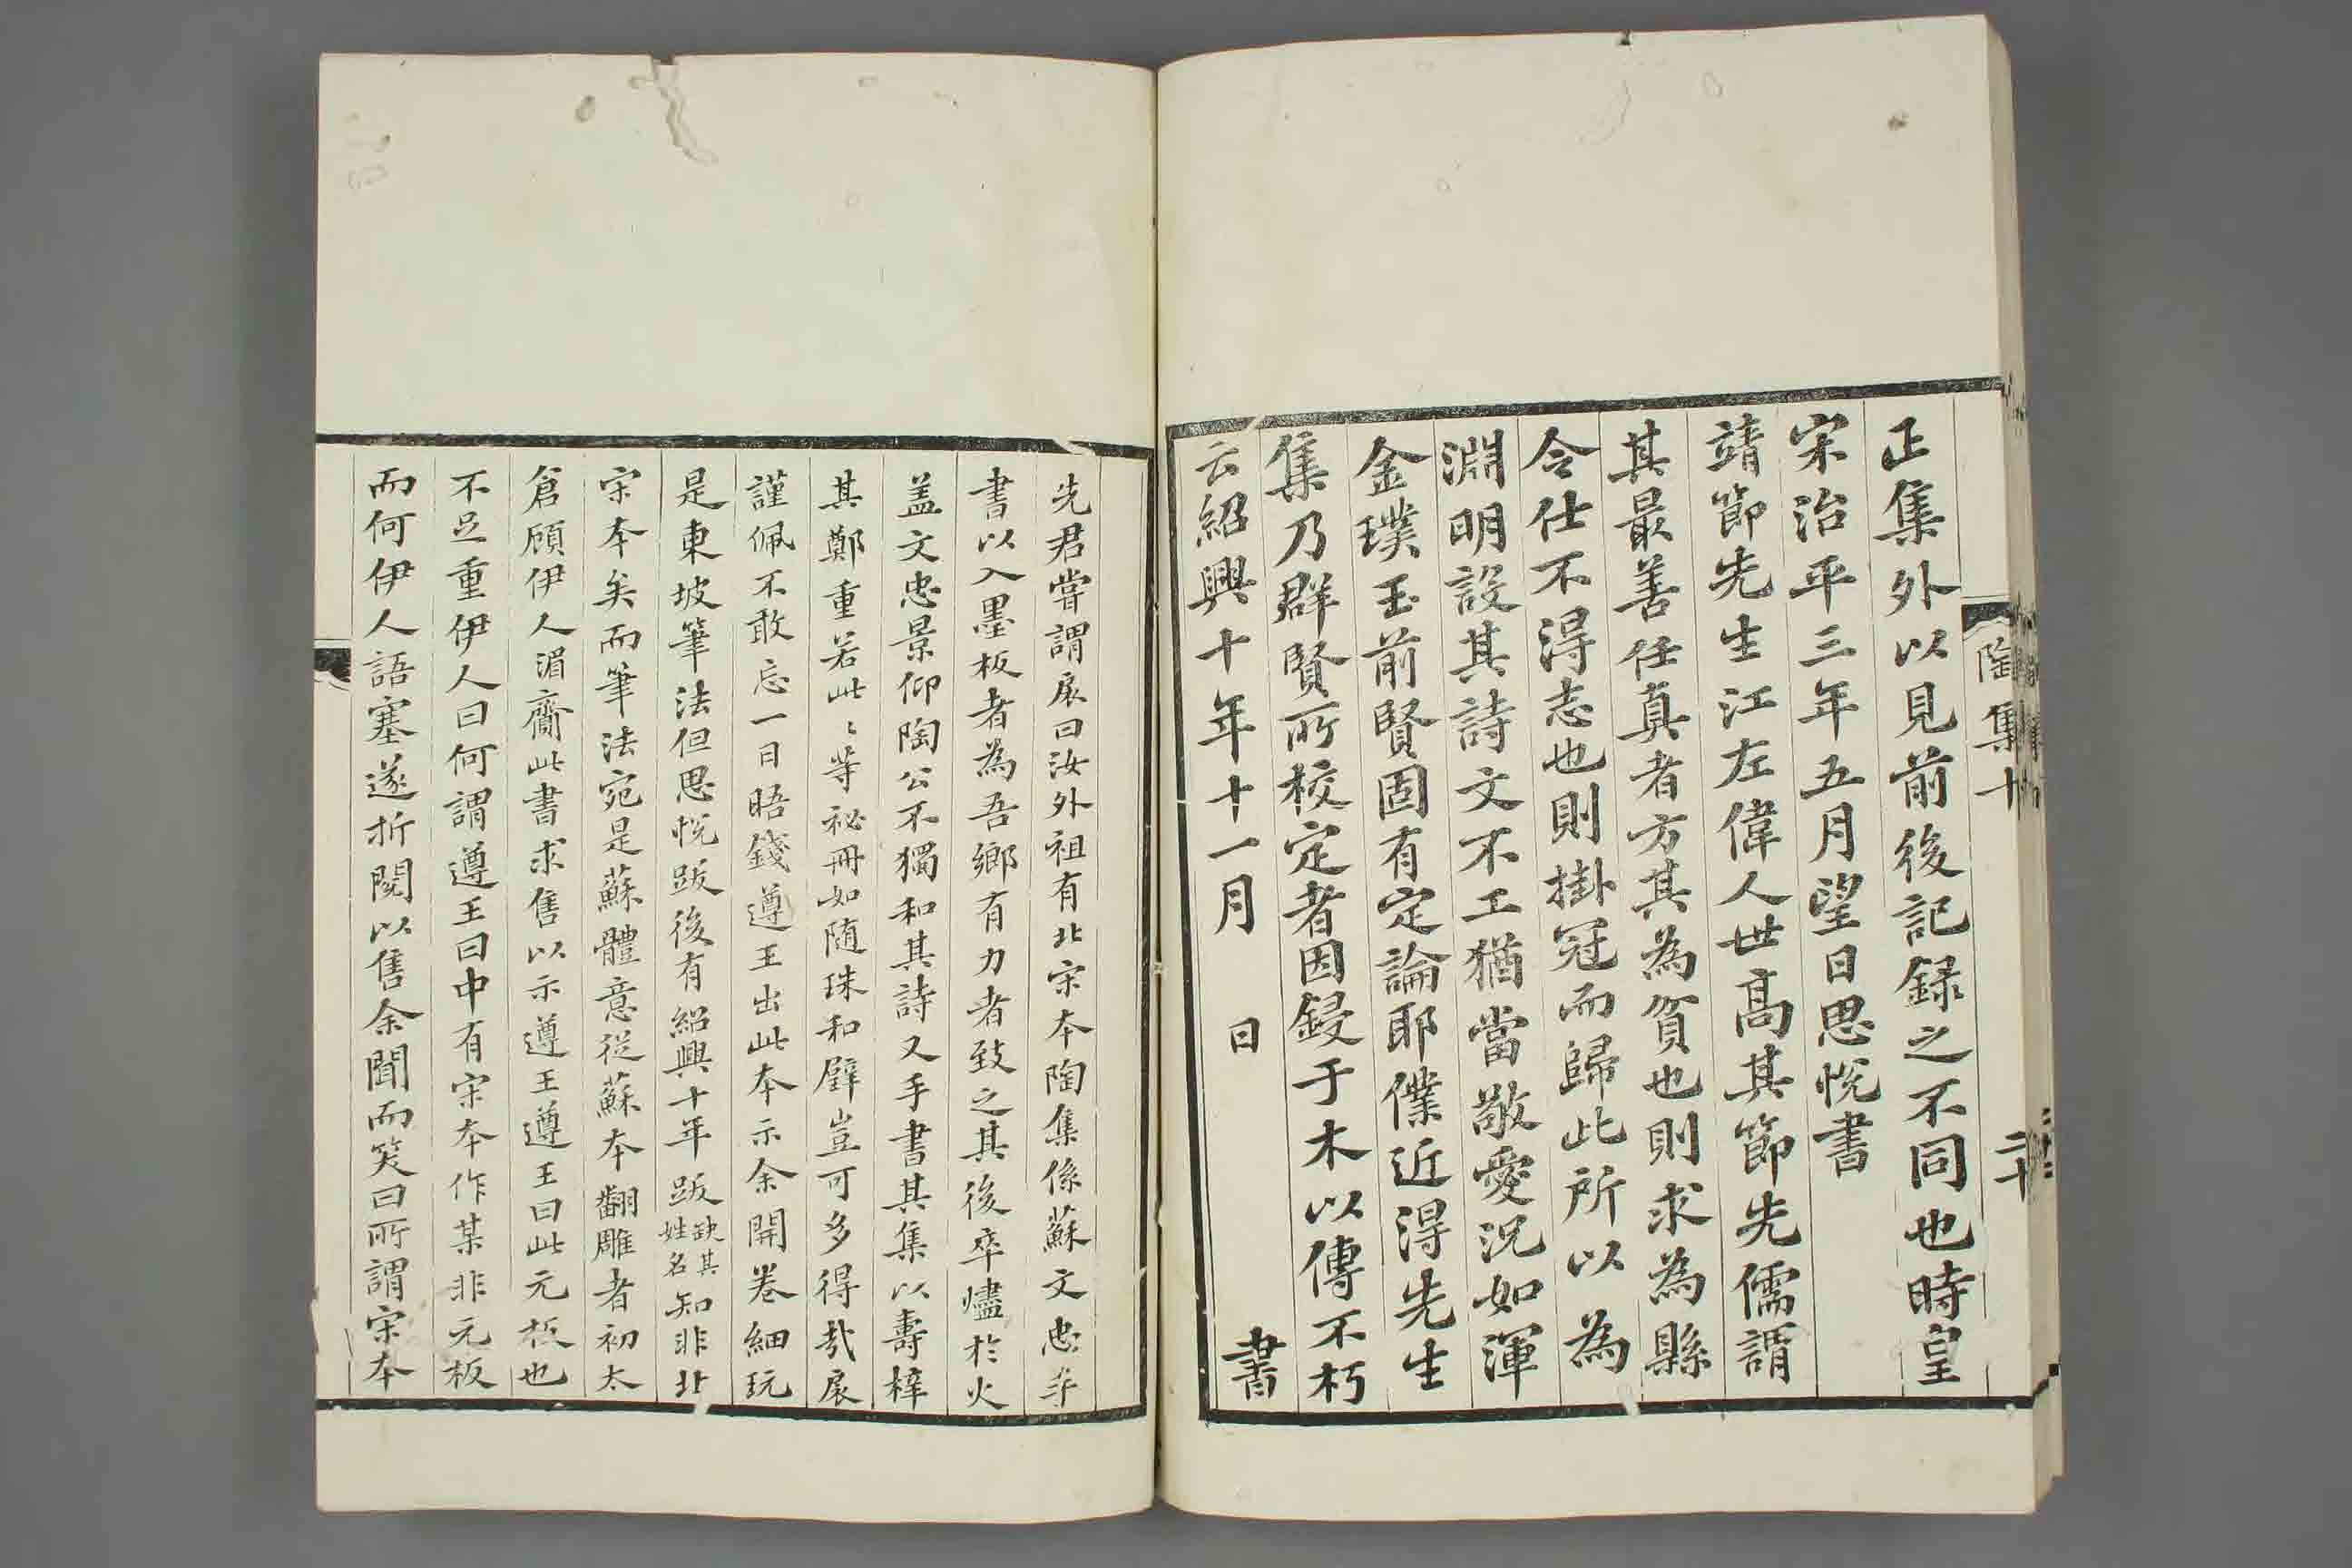 陶集十
二十
正集外以見前後記録之不同也時皇
宋治平三年五月望日思悅書
靖節先生江左偉人世高其節先儒謂
其最善任真者方其為貧也則求為縣
令仕不得志也則掛冠而歸此所以為
淵明設其詩文不工猶當敬愛況如渾
金璞玉前賢固有定論耶僕近得先生
集乃群賢所校定者因鋟于木以傳不朽
云紹興十年十一月　日　書
先君嘗謂扆曰汝外祖有北宋本陶集係蘇文忠手
書以入墨板者為吾鄉有力者致之其後卒燼於火
盖文忠景仰陶公不獨和其詩又手書其集以壽梓
其鄭重若此此等祕冊如隨珠和璧豈可多得哉扆
謹佩不敢忘一日晤錢遵王出此本示余開卷細玩
是東坡筆法但思悅跋後有紹興十年跋缺其姓名知非北
宋本矣而筆法宛是蘇體意從蘇本翻雕者初太
倉顧伊人湄齎此書求售以示遵王遵王曰此元板也
不足重伊人曰何謂遵王曰中有宋本作某非元板
而何伊人語塞遂折閱以售余聞而笑曰所謂宋本